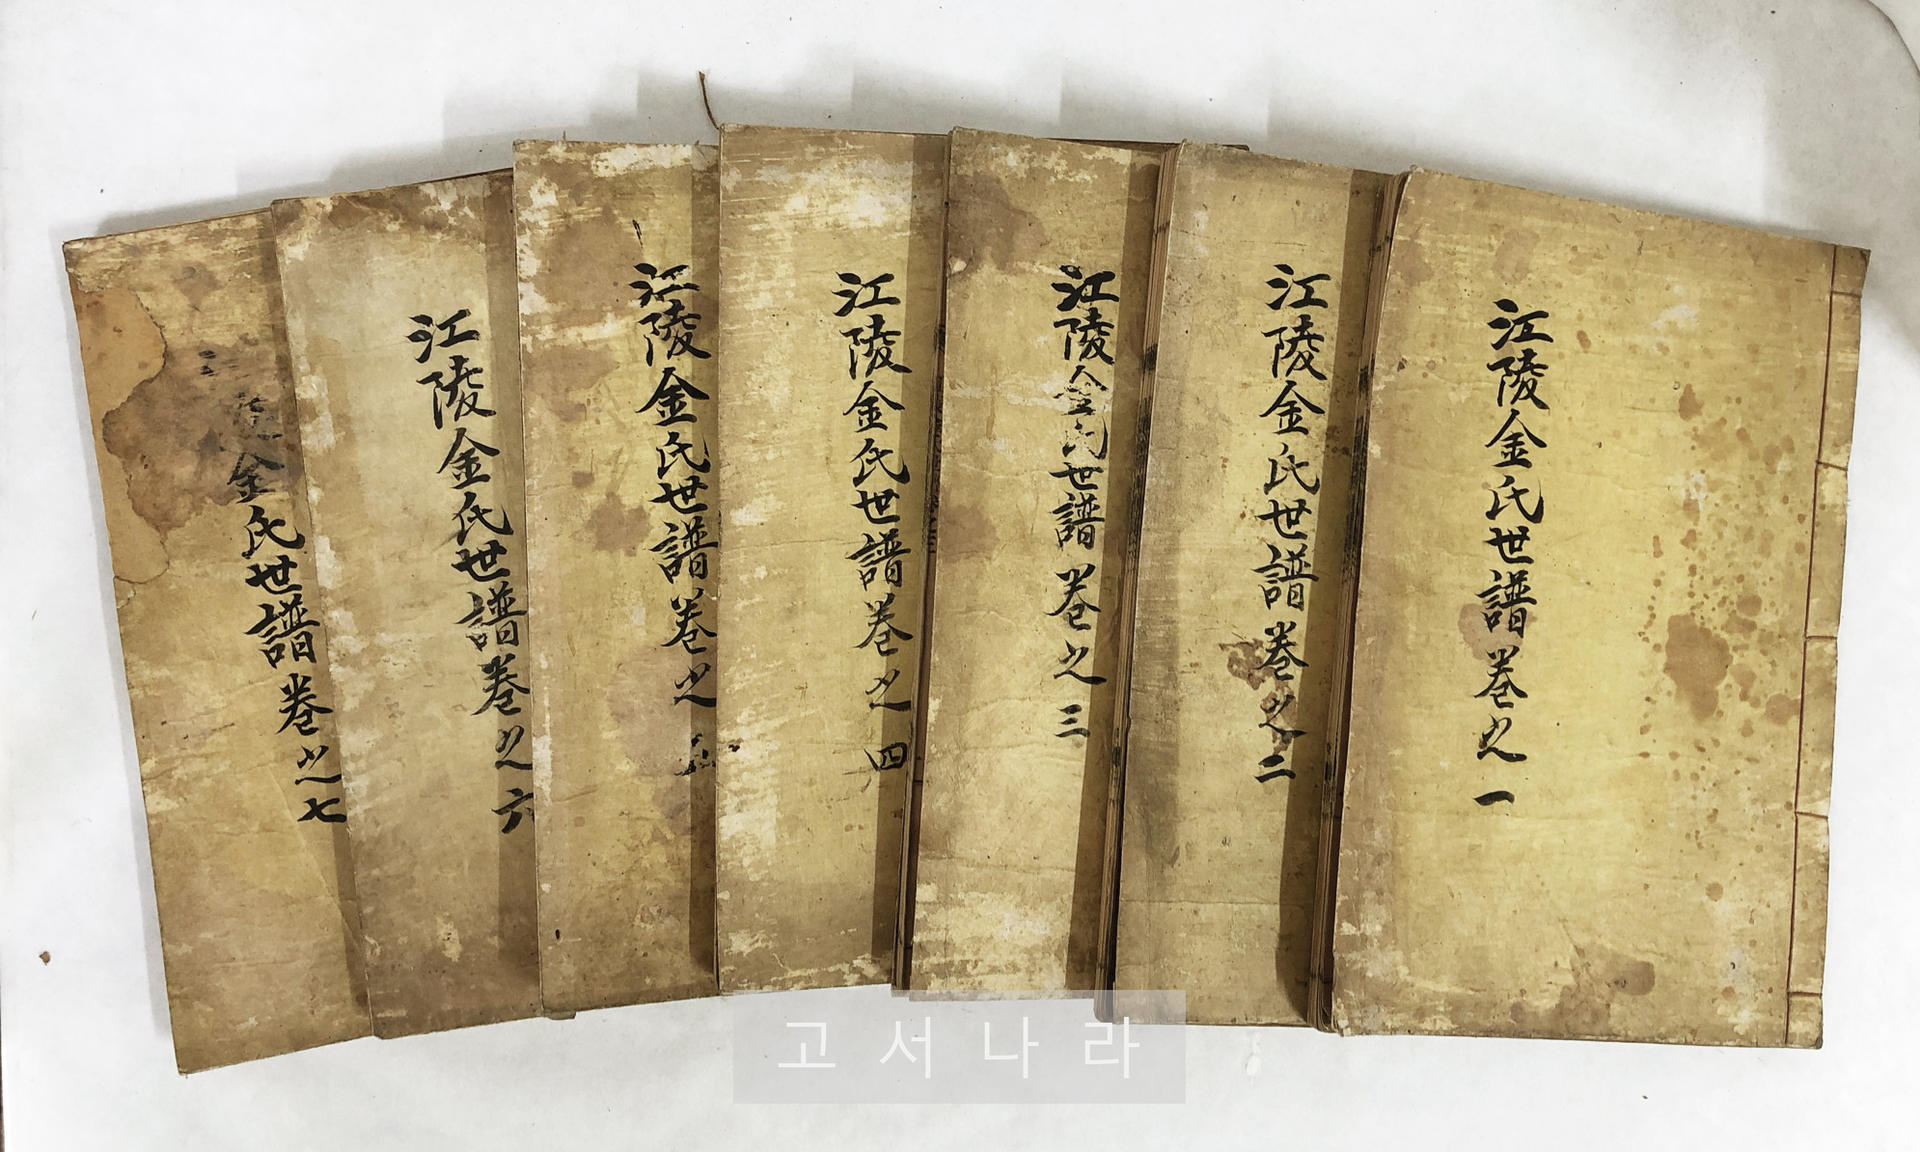 江陵金氏世譜卷之一
江陵金氏世譜 卷之二
江陵金氏世譜 卷之三
江陵金氏世譜卷之四
江陵金氏世譜卷之五
江陵金氏世譜卷之六
陵金氏世譜卷之七
고서나라